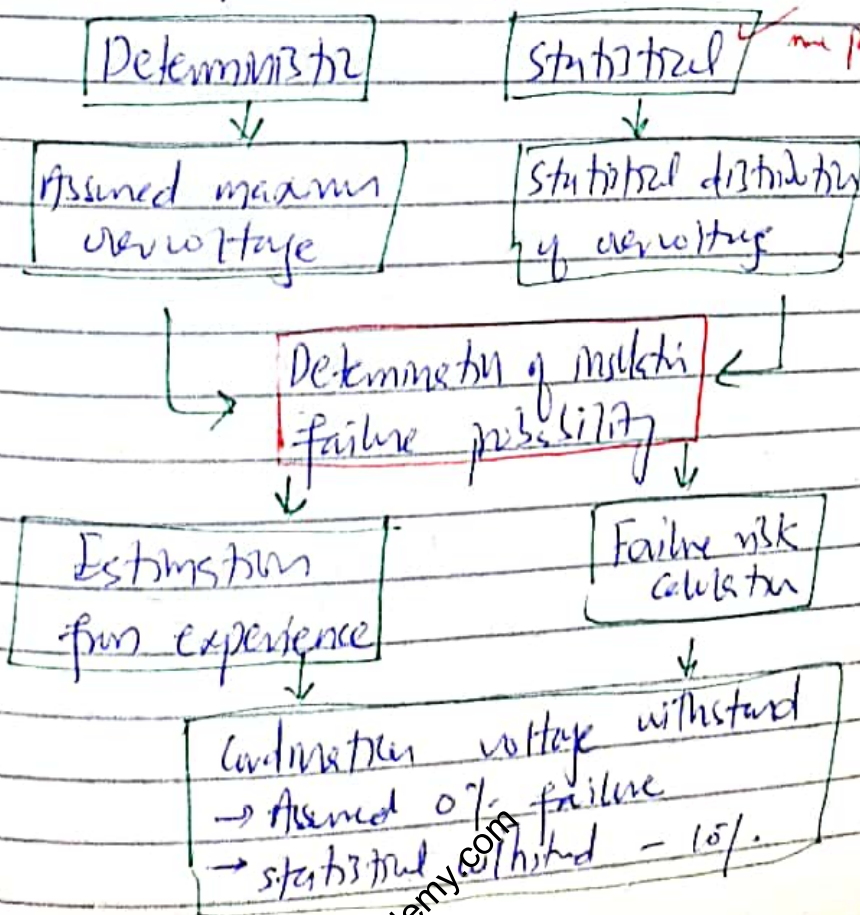 Deterministic
Statistical
Assumed maximum
overvoltage
Statistical distribution
of overvoltage
Determination of insulation
failure probability
Estimation
from experience
Failure risk
calculation
Coordination voltage withstand
→ Assumed 0% failure
→ statistical withstand - 10%.
demy.com